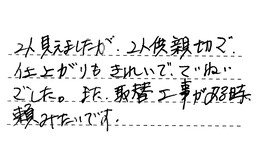 2人見えましたが、2人供親切で
仕上がりもきれいで、ていねい
でした。また、取替工事がある時
頼みたいです。